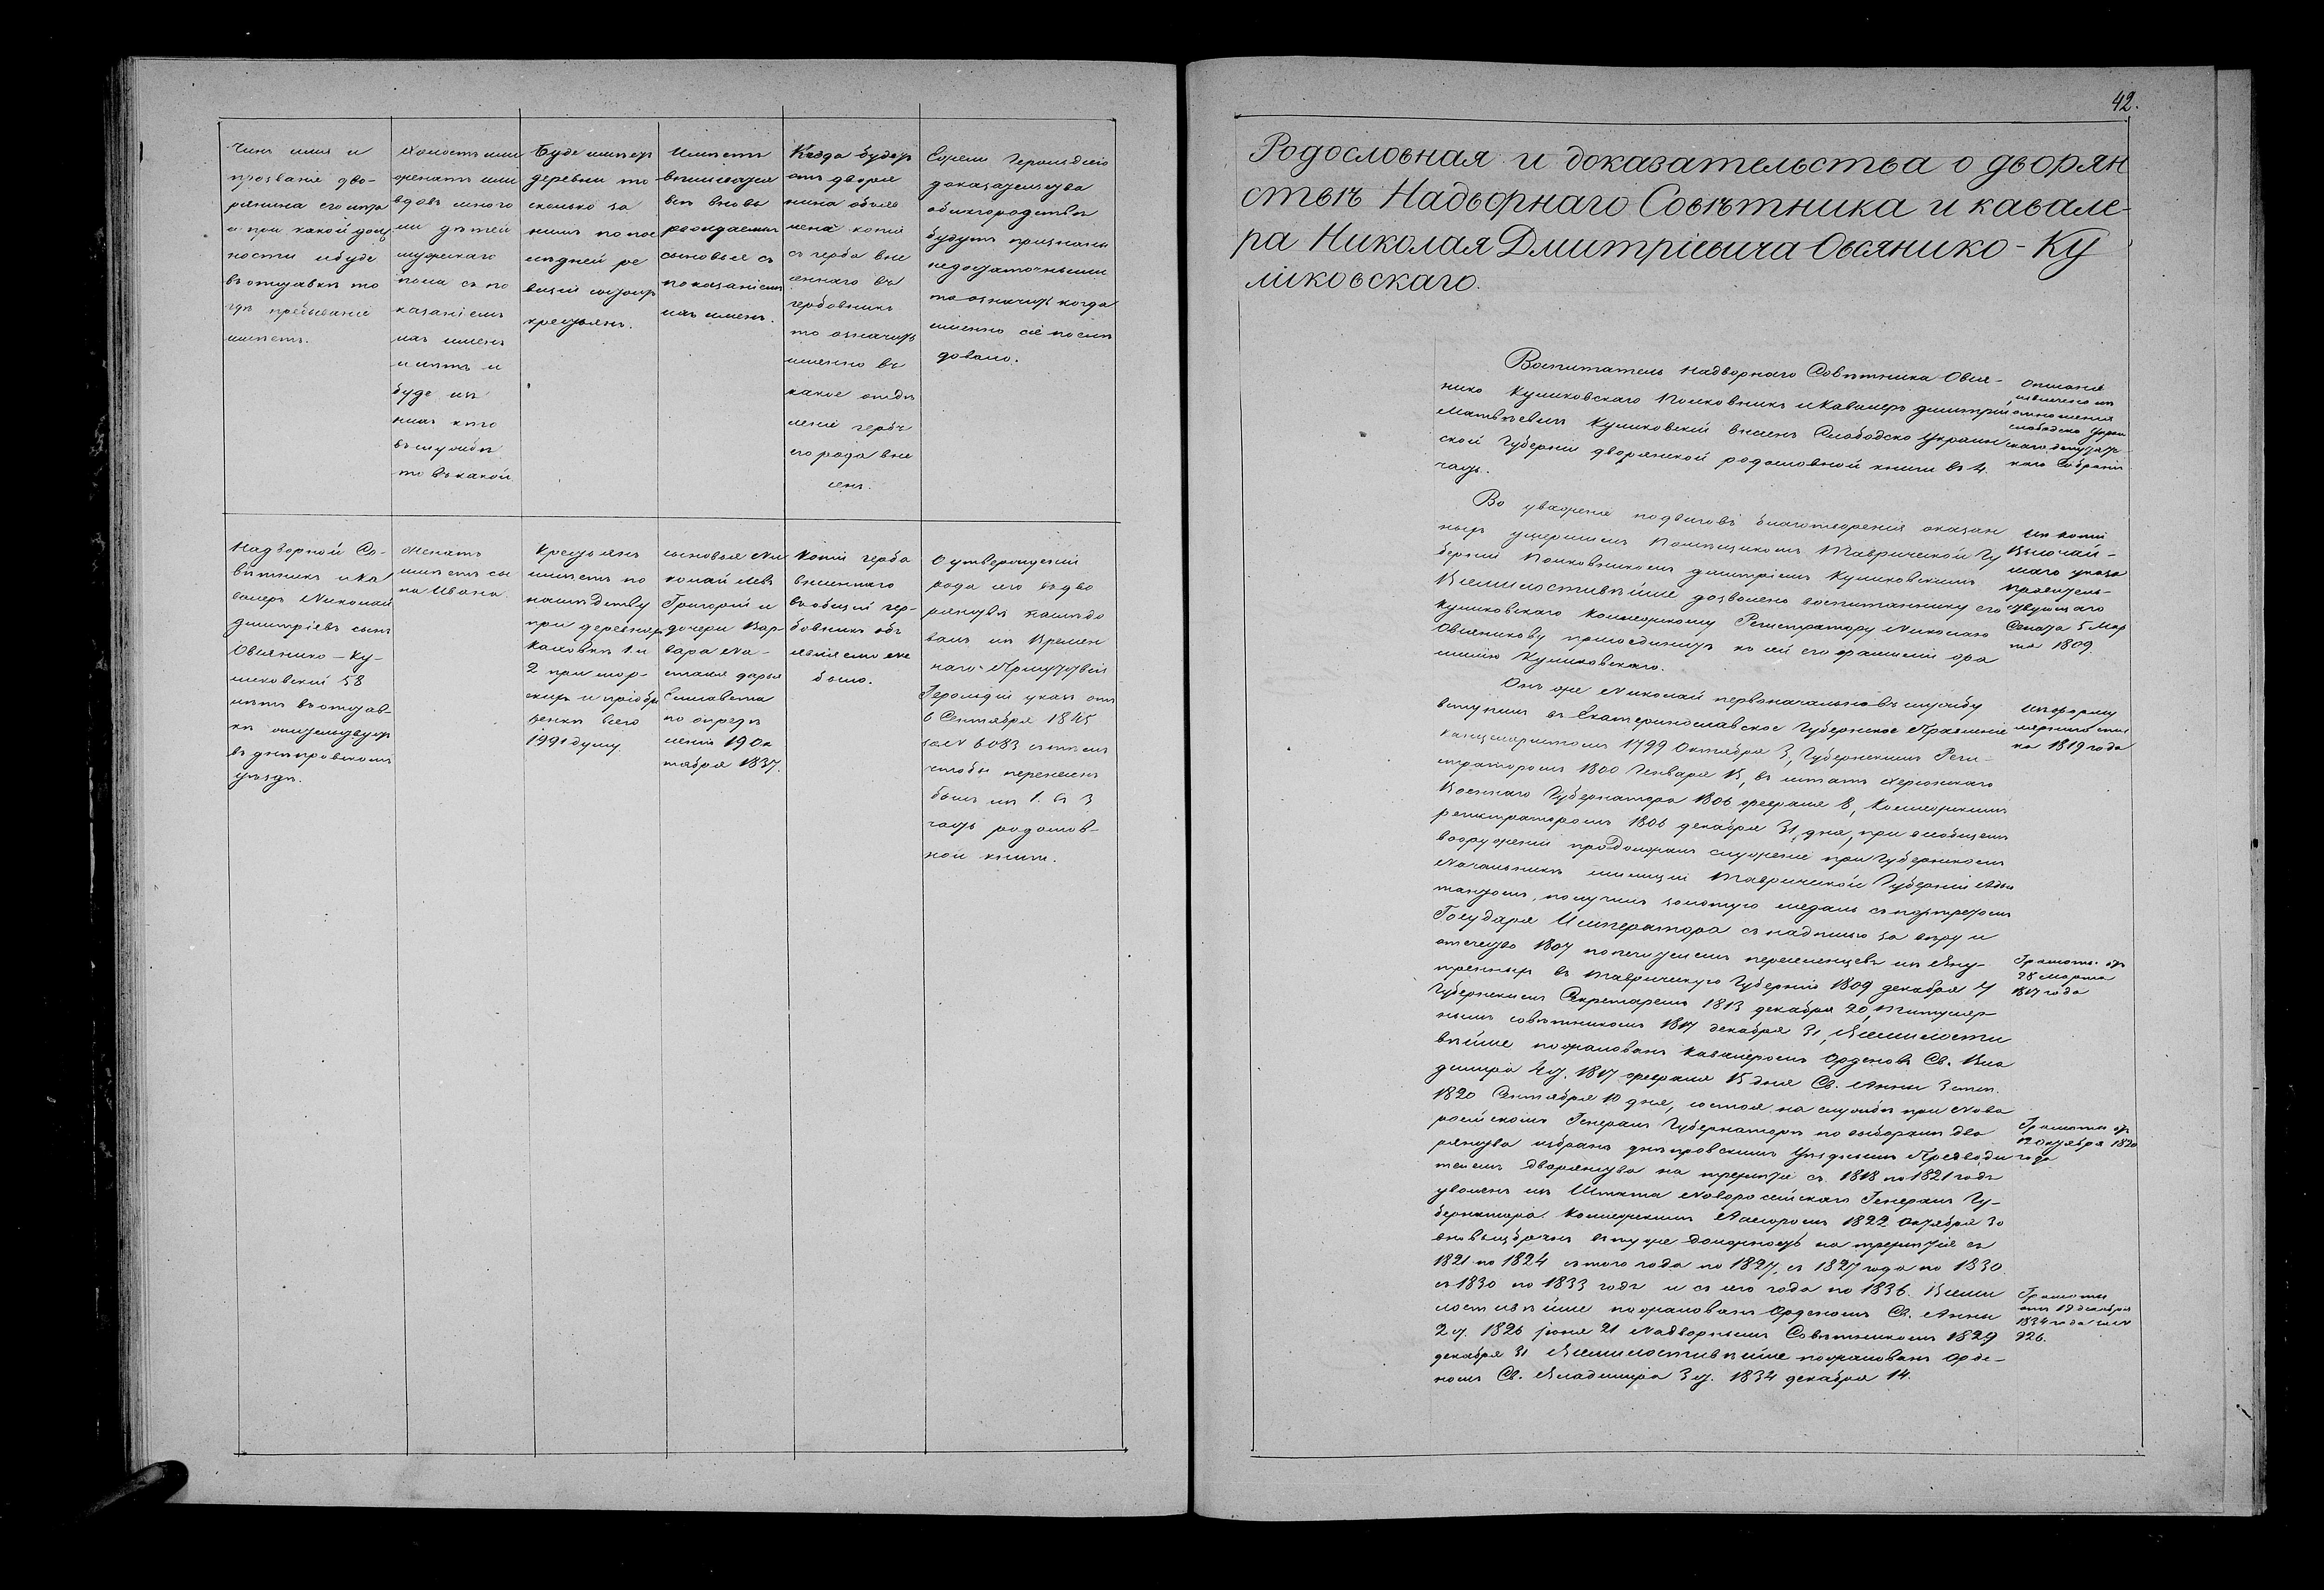 Чинъ имя и
прозваніе дво-
рянина его лѣта
и при какой долж
ности и буде
въ отставкѣ то
гдѣ пребываніе
имѣетъ.
Холостъ или
женатъ или
вдовъ много
ли дѣтей
мужескаго
пола съ по
казаніемъ
ихъ именъ
и лѣтъ и
буде изъ
нихъ кто
въ службѣ
то въ какой
Буде имѣетъ
деревни то
сколько за
нимъ по пос
лѣдней ре
визіи состоитъ
крестьянъ.
Имѣетъ
вписываться
всѣ вновь
рождаемые
сыновья съ
показаніемъ
ихъ именъ.
Когда будетъ
отъ дворя
нина объяв
лена копія
съ герба вне
сеннаго въ
гербовникъ
то означить
именно въ
какое отдѣ
леніе гербъ
его рода вне
сенъ.
Если Герольдіею
доказательства
о благородствѣ
будутъ признаны
недостаточными
то означить когда
именно сіе послѣ
довало.
Надворной Со-
вѣтникъ и Ка
валеръ Николай
Дмитріевъ сынъ
Овсянико-Ку-
ликовскій 58
лѣтъ въ отстав-
кѣ жительствуетъ
въ Днѣпровскомъ
уѣздѣ.
Женатъ
имѣетъ сы
на Ивана.
Крестьянъ
имѣетъ по
наслѣдству
при деревняхъ
Каховкѣ 1. и
2 при мор-
скихъ и пріобрѣ
тенныхъ всего
1991 душу.
сыновья Ни
колай Левъ
Григорій и
дочери Вар-
вара На-
талія Дарья
Елисавета
по опредѣ
ленію 19 Ок
тября 1837.
Копіи герба
внесеннаго
въ общій гер-
бовникъ объ
явлено не
было.
О утвержденіи
рода его въ дво
рянствѣ послѣдо
валъ изъ Времен
наго Присутствія
Герольдіи указъ отъ
6 Сентября 1845
за № 6083 съ тѣмъ
чтобы перенесенъ
былъ изъ 1. въ 3
часть родослов-
ной книги.
42.
Родословная и доказательства о дворян
ствѣ Надворнаго Совѣтника и кавале-
ра Николая Дмитріевича Овсянико-Ку
ликовскаго.
Воспитатель Надворнаго Совѣтника Овся-
нико Куликовскаго Полковникъ и Кавалеръ Дмитрій
Матвѣевичъ Куликовскій внесенъ Слободско Украин
ской Губерніи дворянской родословной книги въ 4.
часть.
Описаніе
извлечено изъ
отношенія
слободско Украин
скаго депутатс-
каго Собранія
Во уваженіе подвиговъ благотворенія оказан
ныхъ умершимъ Помѣщикомъ Таврической Гу
берніи Полковникомъ Дмитріемъ Куликовскимъ
Всемилостивѣйше дозволено воспитаннику его
Куликовскаго Коллежскому Регистратору Николаю
Овсяникову присоединить къ сей его фамиліи фа
милію Куликовскаго.
Изъ копіи
Высочай-
шаго указа
Правитель-
ствующаго
Сената 5 Мар
та 1809
Онъ же Николай первоначально въ службу
вступилъ въ Екатеринославское Губернское Правленіе
Канцеляристомъ 1799 Октября 3, Губернскимъ Реги-
страторомъ 1800 Генваря 15, въ штатъ Херсонскаго
Военнаго Губернатора 1806 февраля 8, Коллежскимъ
регистраторомъ 1806 декабря 31, дня, при всеобщемъ
вооруженіи продолжалъ служеніе при Губернскомъ
Начальникѣ милиціи Таврической Губерніи Адъю
тантомъ, получилъ золотую медаль съ портретомъ
Государя Императора съ надписью за вѣру и
отечество 1807 попечителемъ переселенцевъ изъ Вну-
треннихъ въ Таврическую Губернію 1809 декабря 4
Губернскимъ Секретаремъ 1813 декабря 20, Титуляр-
нымъ совѣтникомъ 1817 декабря 31, Всемилости
вѣйше пожалованъ Кавалеромъ Орденовъ Св. Вла
диміра 4 ст. 1817 февраля 15 дня Св. Анны 3 степ.
1820 Сентября 10 дня, состоя на службѣ при Ново
россійскомъ Генералъ Губернаторѣ по выборамъ дво
рянства избранъ Днѣпровскимъ Уѣзднымъ Предводи
телемъ дворянства на трехлѣтіе съ 1818 по 1821 годъ
уволенъ изъ Штата Новороссійскаго Генералъ Гу-
бернатора Коллежскимъ Асессоромъ 1822 Октября 30
вновь избранъ въ ту же должность на трехлѣтіе съ
1821 по 1824 съ того года по 1827, съ 1827 года по 1830.
съ 1830 по 1833 годъ и съ его года по 1836. Всеми
лостивѣйше пожалованъ Орденомъ Св. Анны
2 ст. 1826 Іюня 21 Надворнымъ Совѣтникомъ 1829
декабря 31 Всемилостивѣйше пожалованъ Орде-
номъ Св. Владиміра 3 ст. 1834 декабря 14.
Изъ форму
лярнаго спис
ка 1819 года
Грамоты отъ
28 Марта
1817 года
Грамоты отъ
12 Октября 1820
года
Грамоты
отъ 19 декабря
1834 года за №
926.